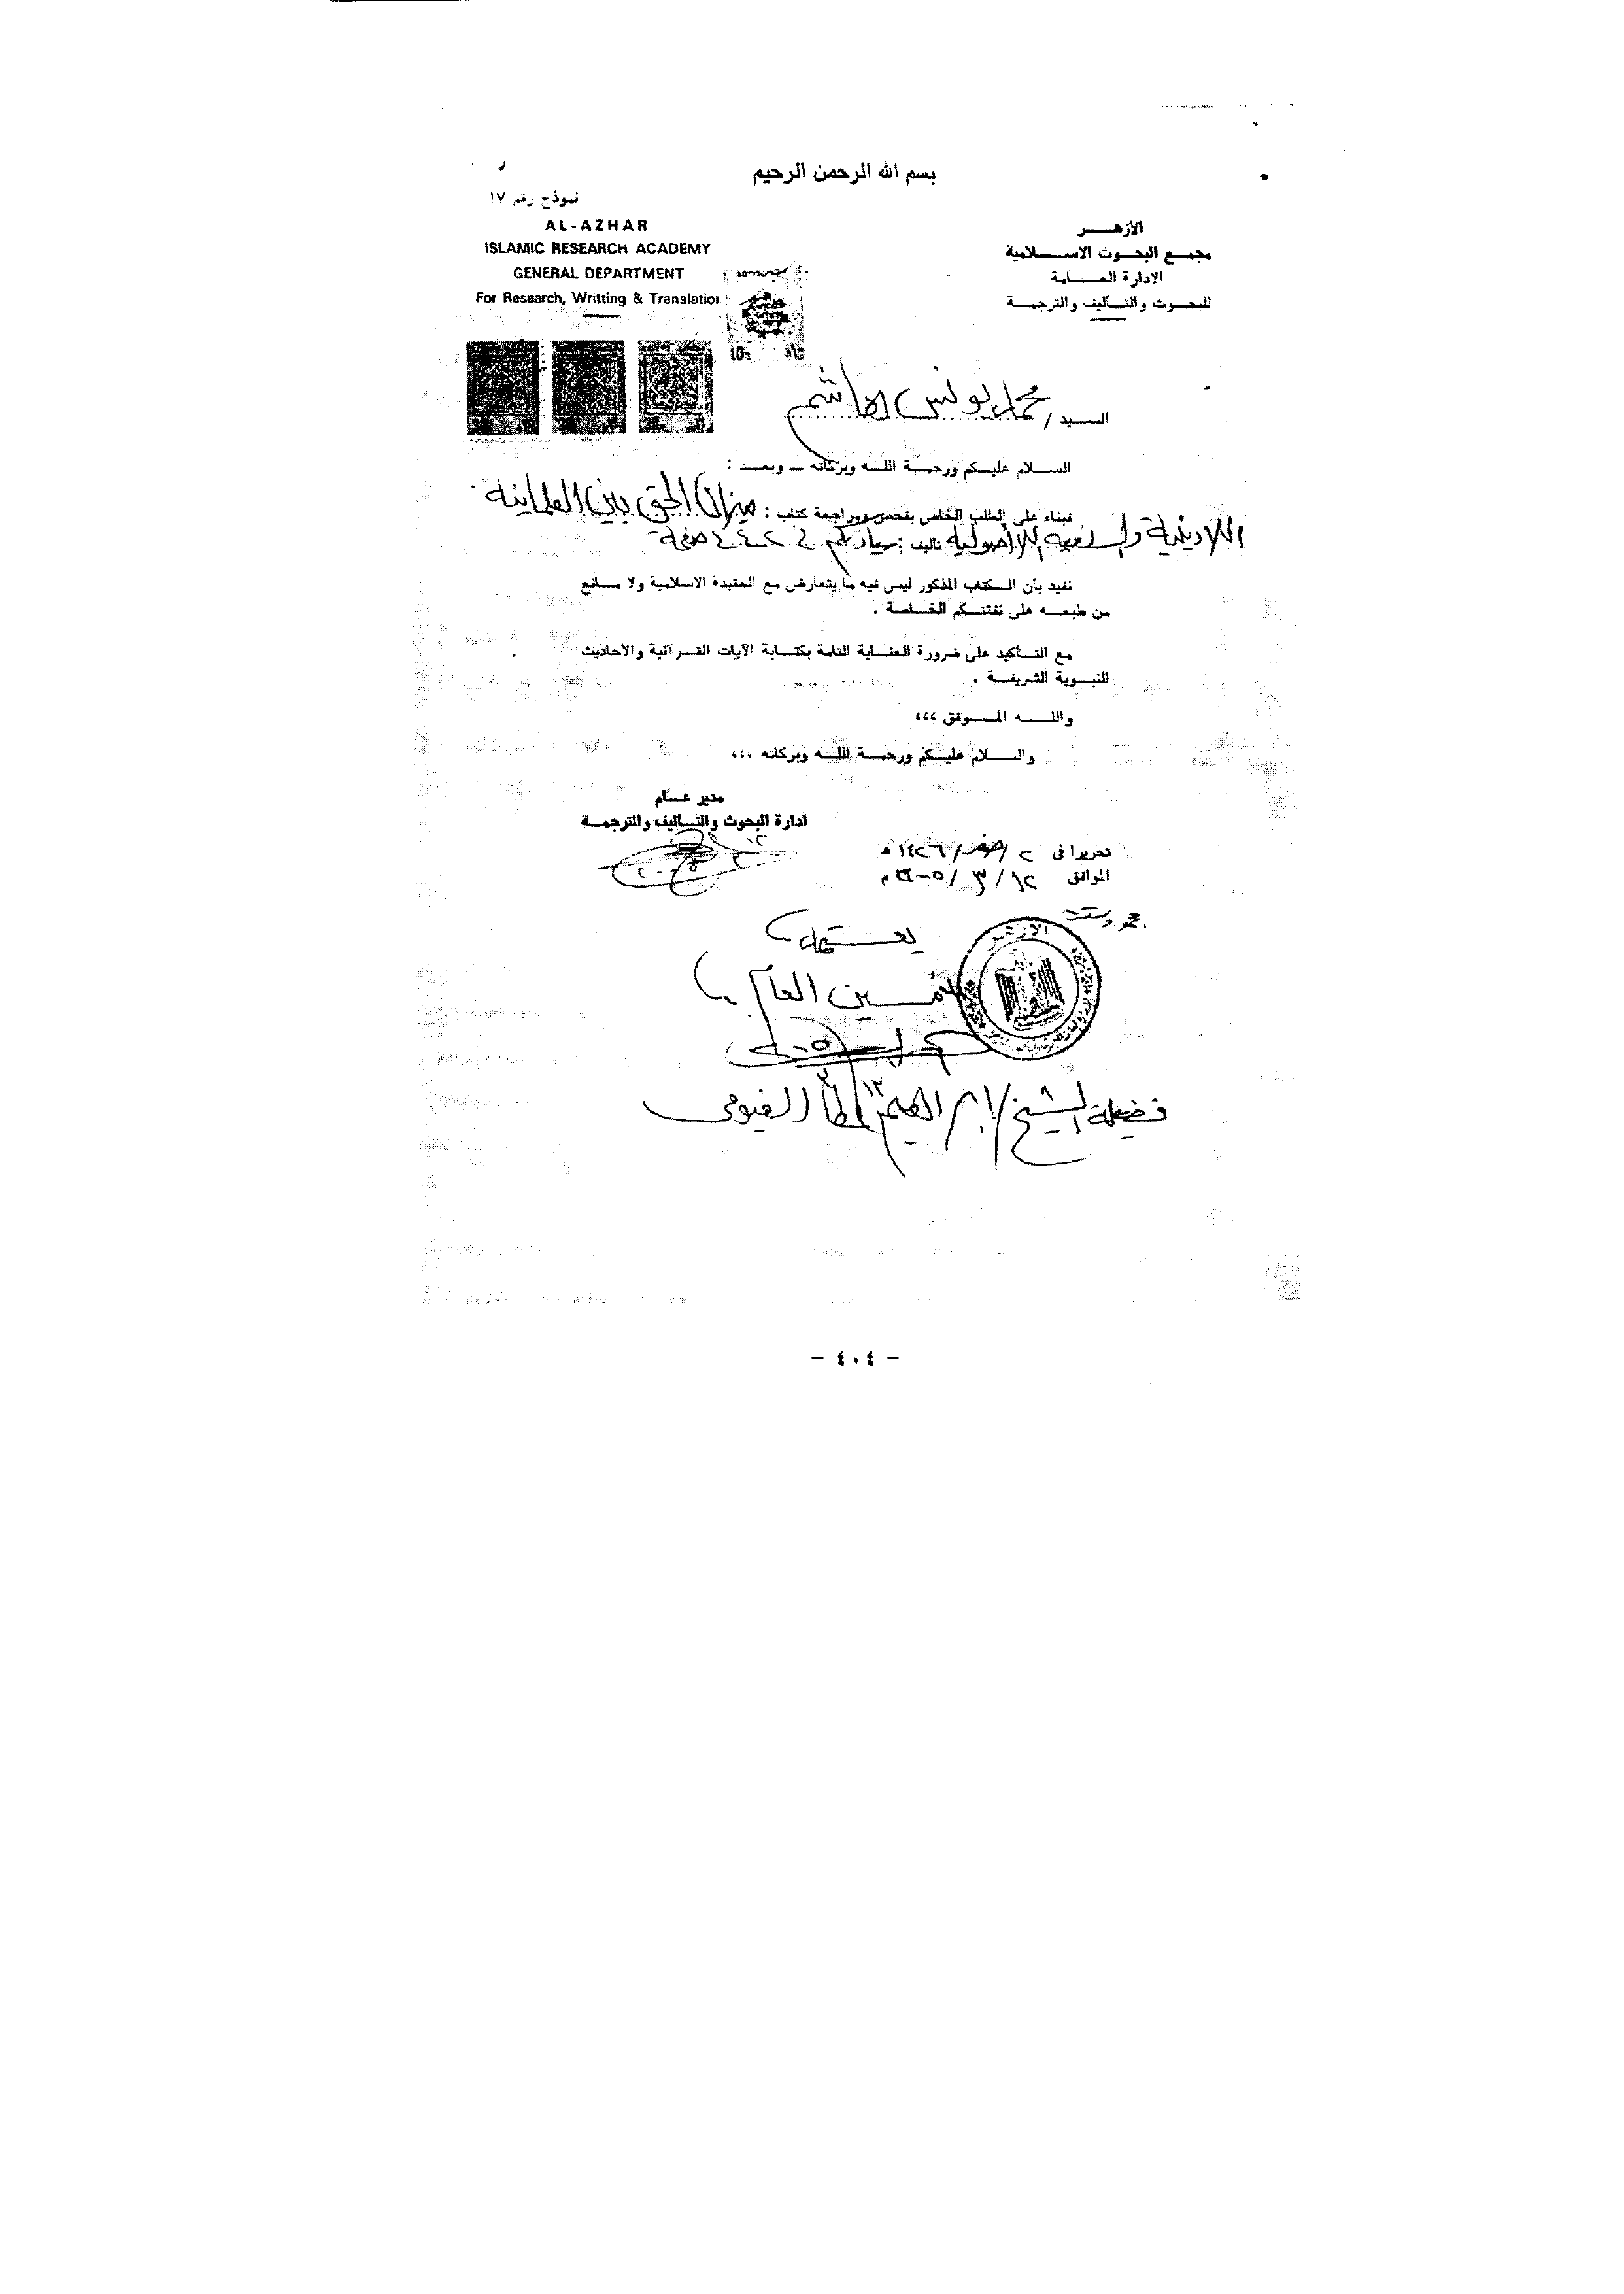 بسم الله الرحمن الرحيم
نموذج رقم ١٧
AL-AZHAR
ISLAMIC RESEARCH ACADEMY
GENERAL DEPARTMENT
For Research, Writting & Translation
الأزهـــر
مجمـع البحـوث الاسـلامية
الإدارة العـــامة
للبحـوث والتـأليف والترجمـة
السيد / محمد يونس هاشم
السـلام عليـكم ورحمـة اللـه وبركاته ــ وبعـد :
فبناء على الطلب الخاص بفحص ومراجعة كتاب : ميزان الحق بين العلمانية
اللادينية والسلفية اللاأصولية تأليف : سيادتكم في ٢٤٤ صفحة
نفيد بأن الـكتاب المذكور ليس فيه ما يتعارض مع العقيدة الاسلامية ولا مـانع
من طبعـه على نفقتـكم الخـاصة .
مع التـأكيد على ضرورة العنـاية التامة بكتـابة الآيات القـرآنية والاحاديث
النبـوية الشريفـة .
واللــه المــوفق ،،،
والسـلام عليـكم ورحمـة اللـه وبركاته ،،،
مدير عـام
ادارة البحوث والتـاليف والترجمـة
تحريرا فى ٢ / صفر / ١٤٢٦ هـ
الموافق ١٢ / ٣ / ٢٠٠٥ م
يعتمد
الأمين العام
الأزهر
فضيلة الشيخ / ابراهيم عطا الفيومى
- ٤٠٤ -